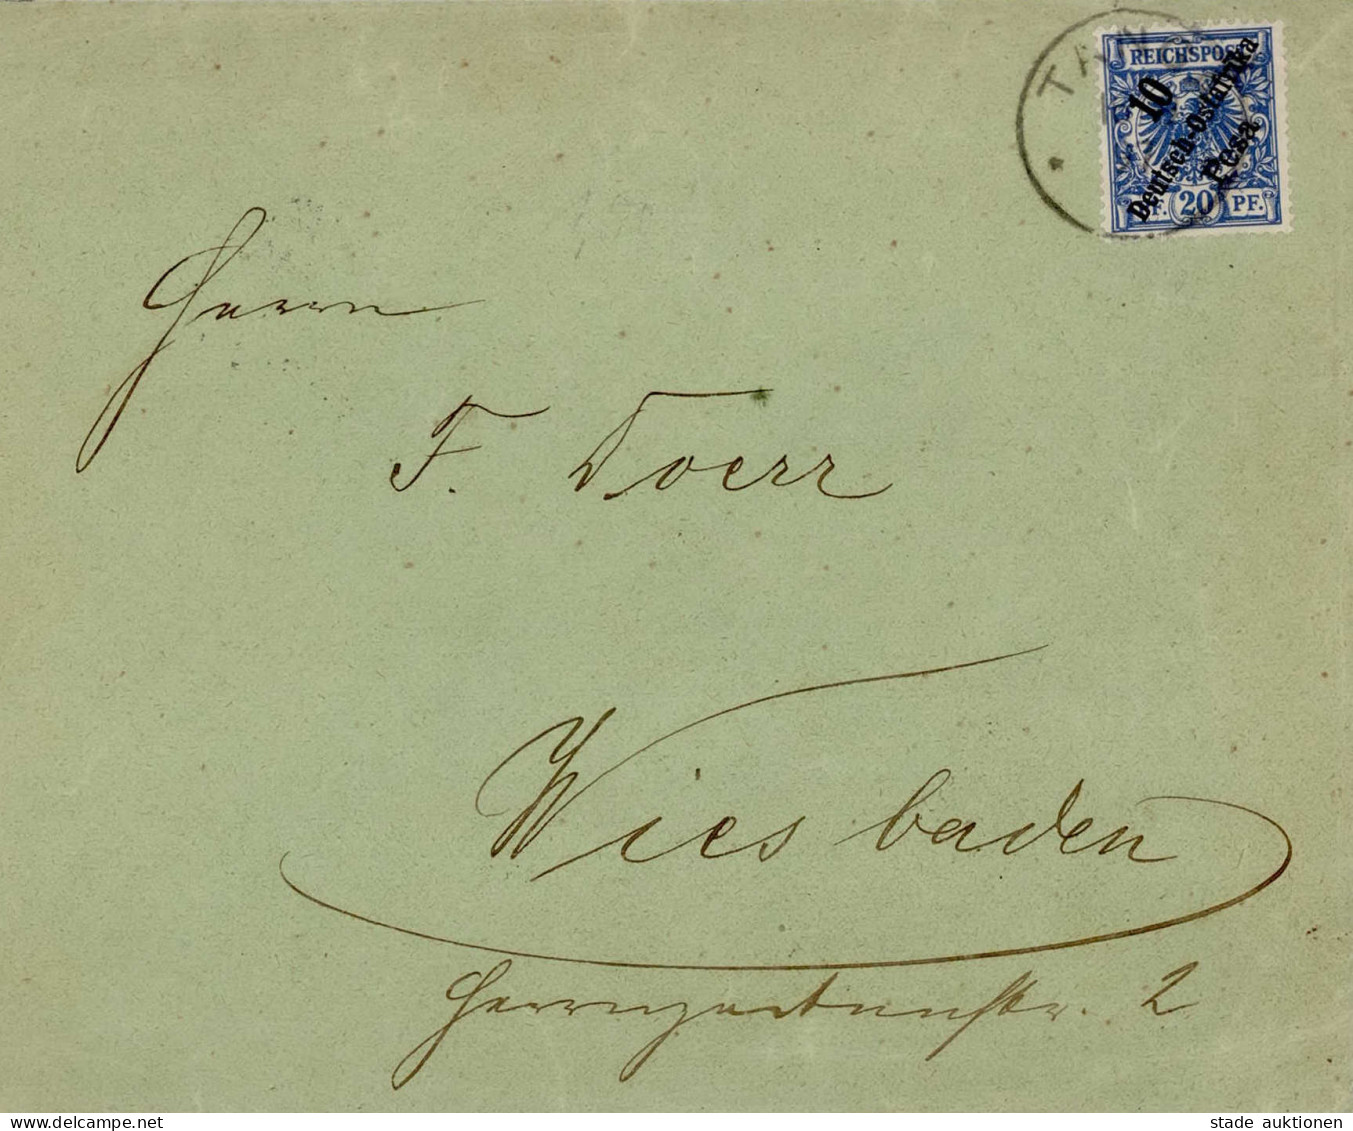 REICHSPOST
10
Deutsch-Ostafrika
Pesa
20 PF.
Herrn
F. Doerr
Wiesbaden
Herrngartenstr. 2
www.delcampe.net
stade auktionen